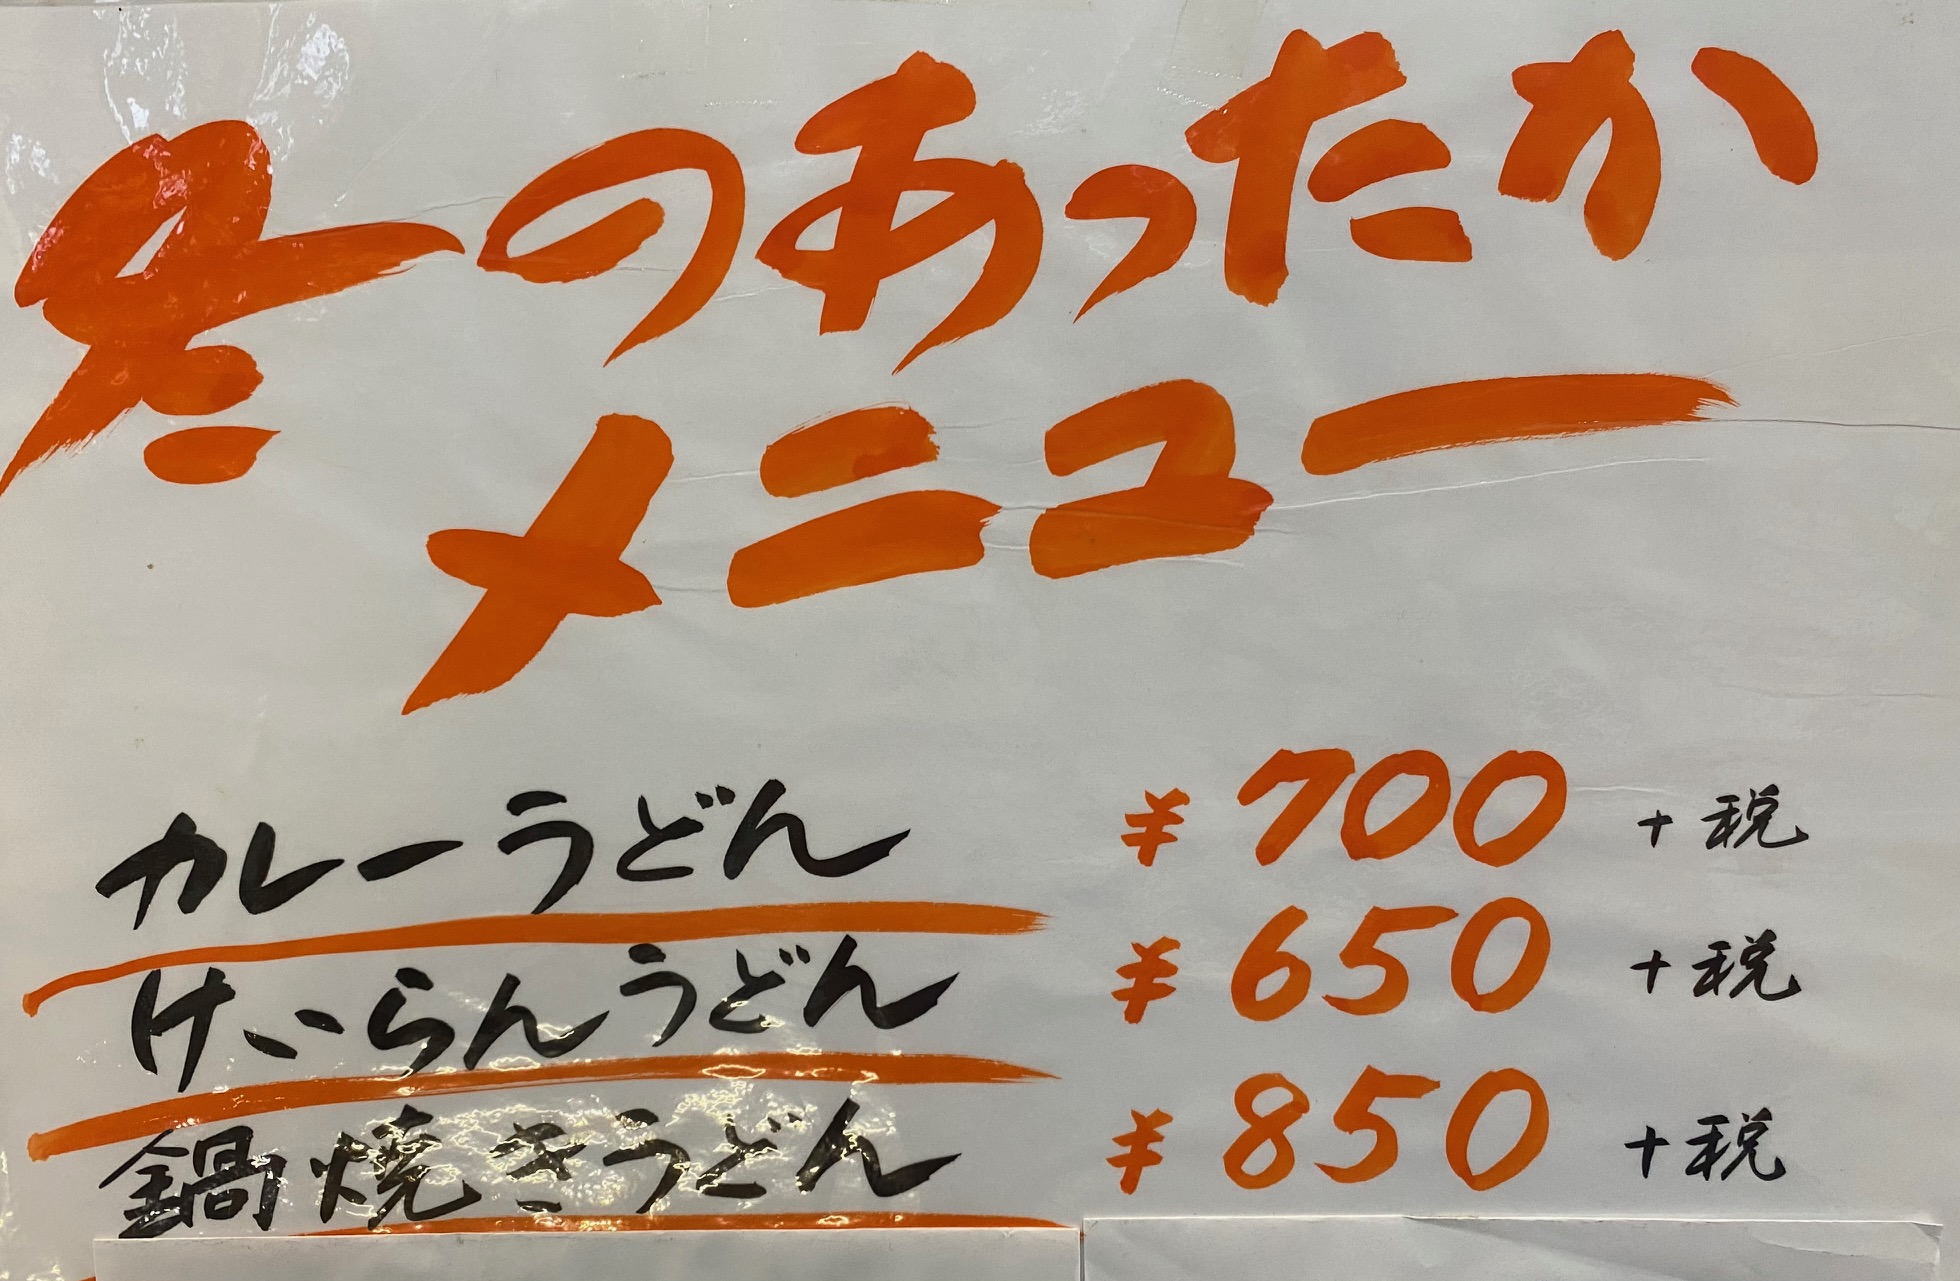 冬のあったか
メニュー
カレーうどん ¥700 +税
けいらんうどん ¥650 +税
鍋焼きうどん ¥850 +税